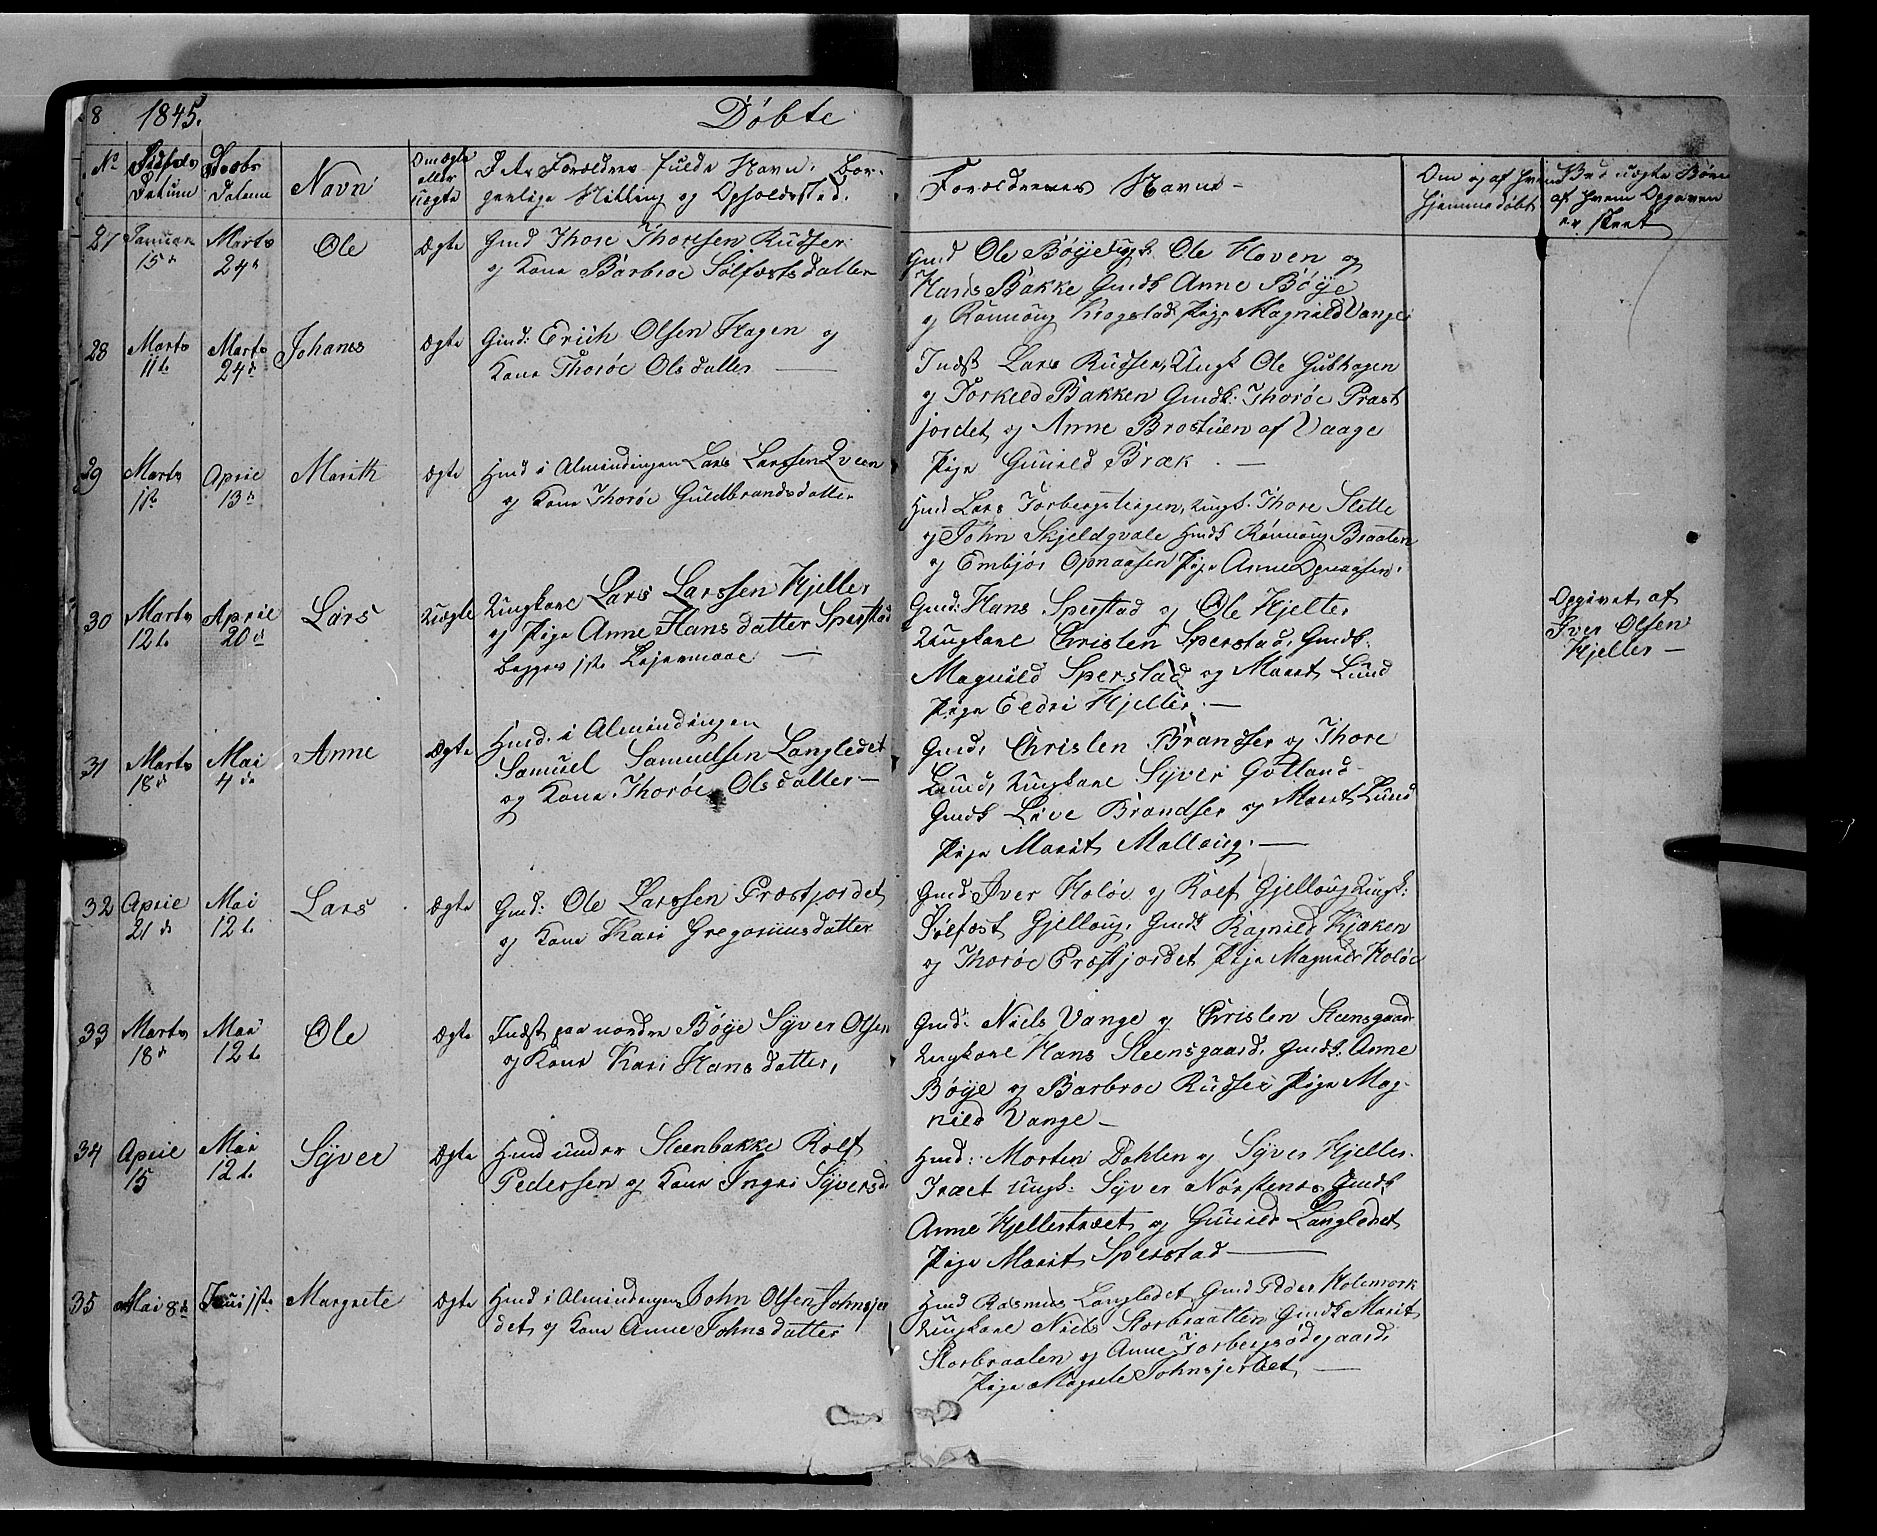 8 1845. Döbte
No Fødsels Datum Daabs Datum Navn Om ægte eller uægte Forældres fulde Navn, Bor-
gerlige Stilling og Opholdsted.
Forældrenes Navne -
Om og af hvem hjemmedøbt
Ved uægte Børn af hvem Opgaven er skeet
27 Januar 15d Marts 24d Ole Ægte Gmd Thore Thoresen Rudser
og Kone Barbroe Sølfestsdatter
Gmd Ole Böye Ungk. Ole Hoven og
Hans Bakke Gmdk Anne Böye
og Rönnoug Krogstad Pige Magnild Vange
28 Marts 11te Marts 24d Johanes Ægte Gmd: Erich Olsen Hagen og
Kone Thoröe Olsdatter —
Indst Lars Rudser, Ungk Ole Gubhagen
og Torkeld Bakken Gmdk. Thoröe Præst
jordet og Anne Brostuen af Vaage
Pige Guneld Bræk. —
29 Marts 1ste April 13d Marith Ægte Hmd i Almindingen Lars Larssen Qveen
og Kone Thoröe Guldbrandsdatter
Hmd Lars Torbergsteigen, Ungk. Thore Slette
og John Skjeldqvale Hmdk Rönnoug Braaten
og Embjör Opnaasen Pige Anne Opnaasen.
30 Marts 12te April 20d Lars Uægte Ungkarl Lars Larssen Hjelter
og Pige Anne Hansdatter Sperstad
begges 1ste Lejermaal —
Gmd: Hans Sperstad og Ole Hjelter
Ungkarl Christen Sperstad, Gmdk.
Magnild Sperstad og Marit Lund
Pige Eldri Hjelter. —
Opgivet af
Iver Olsen
Hjeller —
31 Marts 18d Mai 4de Anne Ægte Hmd. i Almindingen
Samuel Samuelsen Langledet
og Kone Thoröe Olsdatter —
Gmd: Christen Brandser og Thore
Lund, Ungkarl Syver Gotland
Gmdk Live Brandser og Marit Lund
Pige Marit Malloug. —
32 April 21de Mai 12te Lars Ægte Gmd: Ole Larssen Præstjordet
og Kone Kari Gregoriusdatter
Gmd Iver Holöe og Rolf Gjelloug Ungk:
Sølfest Gjelloug, Gmdk Ragnild Kjæken
og Thoröe Præstjordet Pige Magnild Holöe
33 Marts 18d Mai 12te Ole Ægte Indst paa nordre Böye Syver Olsen
og Kone Kari Hansdatter,
Gmd: Niels Vange og Christen Steensgaard
Ungkarl Hans Steensgaard, Gmdk. Anne
Böye og Barbroe Rudser Pige Mag-
nild Vange —
34 April 15 Mai 12te Syver Ægte Hmd under Steenbakke Rolf
Pedersen og Kone Ingri Syversd.
Hmd: Morten Dahlen og Syver Hjeller-
træet Ungk: Syver Nörstenes Gmdk.
Anne Hjellertræet og Guneld Langledet
Pige Marit Sperstad —
35 Mai 8de Juni 1ste Margrete Ægte Hmd i Almindingen John Olsen Johnsjor
det og Kone Anne Johnsdatter
Hmd Rasmus Langledet Gmd Peder Holemork
Ungkarl Niels Storbraatten Gmdk Marit
Storbraaten og Anne Torbergsödegaard.
Pige Magrete Johnsjordet —